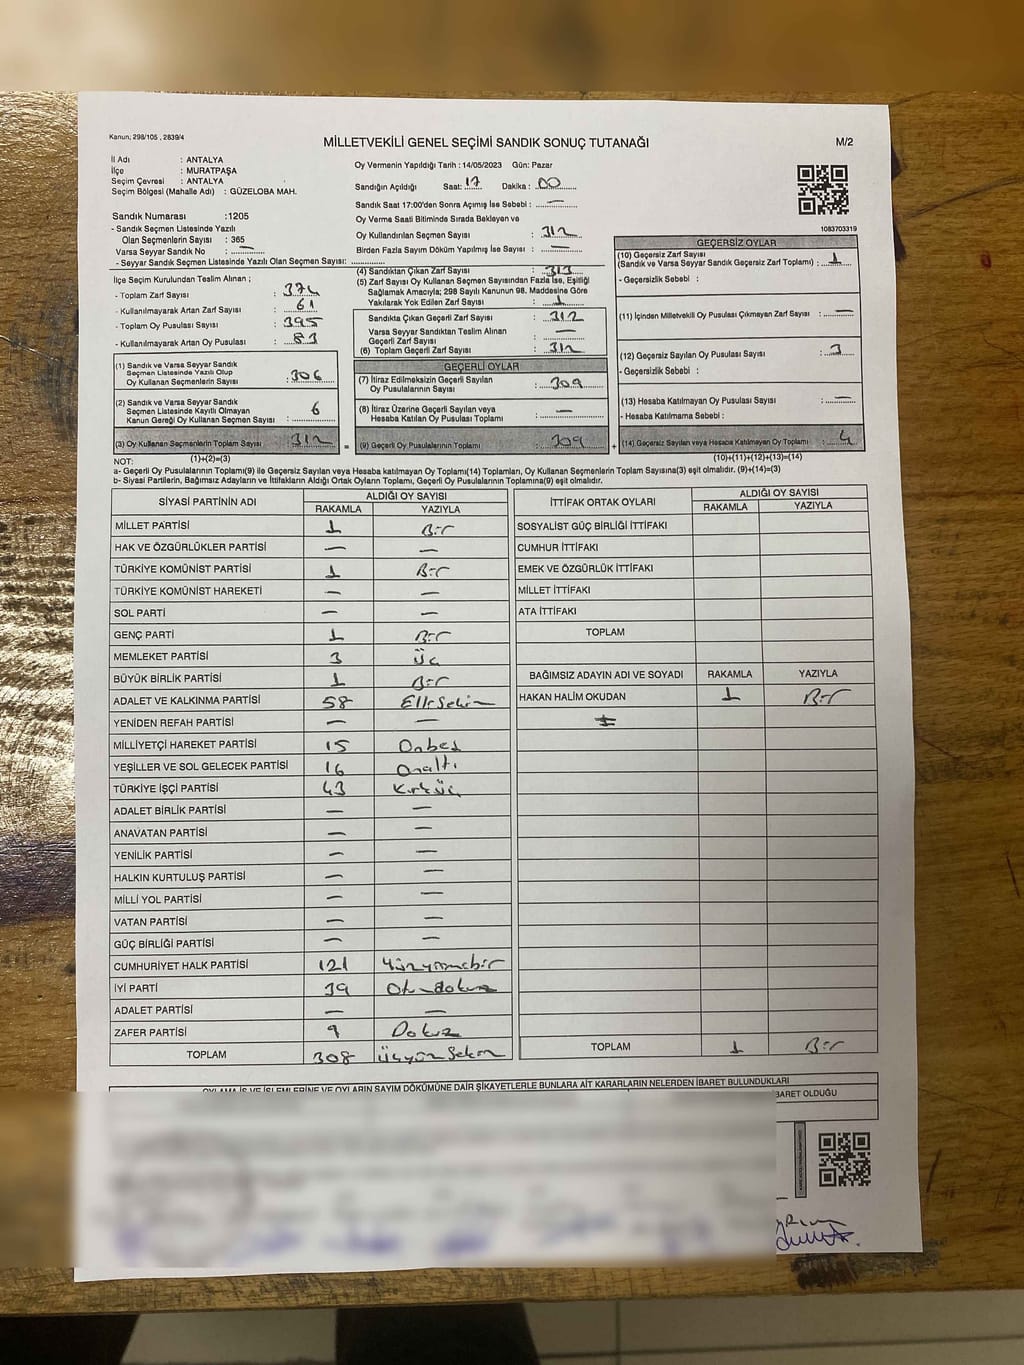 Kanun; 298/105 , 2839/4
MİLLETVEKİLİ GENEL SEÇİMİ SANDIK SONUÇ TUTANAĞI
M/2
İl Adı : ANTALYA
İlçe : MURATPAŞA
Seçim Çevresi : ANTALYA
Seçim Bölgesi (Mahalle Adı) : GÜZELOBA MAH.
Sandık Numarası :1205
- Sandık Seçmen Listesinde Yazılı
Olan Seçmenlerin Sayısı : 365
Varsa Seyyar Sandık No : —
- Seyyar Sandık Seçmen Listesinde Yazılı Olan Seçmen Sayısı:
Oy Vermenin Yapıldığı Tarih : 14/05/2023 Gün: Pazar
Sandığın Açıldığı Saat: 17 Dakika : 00
Sandık Saat 17:00'den Sonra Açımış İse Sebebi : —
Oy Verme Saati Bitiminde Sırada Bekleyen ve
Oy Kullandırılan Seçmen Sayısı : 312
Birden Fazla Sayım Döküm Yapılmış İse Sayısı : —
1083703319
İlçe Seçim Kurulundan Teslim Alınan ;
- Toplam Zarf Sayısı : 374
- Kullanılmayarak Artan Zarf Sayısı : 61
- Toplam Oy Pusulası Sayısı : 395
- Kullanılmayarak Artan Oy Pusulası : 83
(1) Sandık ve Varsa Seyyar Sandık
Seçmen Listesinde Yazılı Olup
Oy Kullanan Seçmenlerin Sayısı : 306
(2) Sandık ve Varsa Seyyar Sandık
Seçmen Listesinde Kayıtlı Olmayan
Kanun Gereği Oy Kullanan Seçmen Sayısı : 6
(3) Oy Kullanan Seçmenlerin Toplam Sayısı : 312
(1)+(2)=(3)
(4) Sandıktan Çıkan Zarf Sayısı : 313
(5) Zarf Sayısı Oy Kullanan Seçmen Sayısından Fazla İse, Eşitliği
Sağlamak Amacıyla; 298 Sayılı Kanunun 98. Maddesine Göre
Yakılarak Yok Edilen Zarf Sayısı : 1
Sandıkta Çıkan Geçerli Zarf Sayısı : 312
Varsa Seyyar Sandıktan Teslim Alınan
Geçerli Zarf Sayısı : —
(6) Toplam Geçerli Zarf Sayısı : 312
GEÇERLİ OYLAR
(7) İtiraz Edilmeksizin Geçerli Sayılan
Oy Pusulalarının Sayısı : 309
(8) İtiraz Üzerine Geçerli Sayılan veya
Hesaba Katılan Oy Pusulası Toplamı : —
= (9) Geçerli Oy Pusulalarının Toplamı : 309 +
GEÇERSİZ OYLAR
(10) Geçersiz Zarf Sayısı
(Sandık ve Varsa Seyyar Sandık Geçersiz Zarf Toplamı) : 1
- Geçersizlik Sebebi :
(11) İçinden Milletvekili Oy Pusulası Çıkmayan Zarf Sayısı : —
(12) Geçersiz Sayılan Oy Pusulası Sayısı : 3
- Geçersizlik Sebebi :
(13) Hesaba Katılmayan Oy Pusulası Sayısı : —
- Hesaba Katılmama Sebebi :
(14) Geçersiz Sayılan veya Hesaba Katılmayan Oy Toplamı : 4
(10)+(11)+(12)+(13)=(14)
NOT:
a- Geçerli Oy Pusulalarının Toplamı(9) ile Geçersiz Sayılan veya Hesaba katılmayan Oy Toplamı(14) Toplamları, Oy Kullanan Seçmenlerin Toplam Sayısına(3) eşit olmalıdır. (9)+(14)=(3)
b- Siyasi Partilerin, Bağımsız Adayların ve İttifakların Aldığı Ortak Oyların Toplamı, Geçerli Oy Pusulalarının Toplamına(9) eşit olmalıdır.
SİYASİ PARTİNİN ADI ALDIĞI OY SAYISI
RAKAMLA YAZIYLA
MİLLET PARTİSİ 1 Bir
HAK VE ÖZGÜRLÜKLER PARTİSİ — —
TÜRKİYE KOMÜNİST PARTİSİ 1 Bir
TÜRKİYE KOMÜNİST HAREKETİ — —
SOL PARTİ — —
GENÇ PARTİ 1 Bir
MEMLEKET PARTİSİ 3 Üç
BÜYÜK BİRLİK PARTİSİ 1 Bir
ADALET VE KALKINMA PARTİSİ 58 Ellisekiz
YENİDEN REFAH PARTİSİ — —
MİLLİYETÇİ HAREKET PARTİSİ 15 Onbeş
YEŞİLLER VE SOL GELECEK PARTİSİ 16 Onaltı
TÜRKİYE İŞÇİ PARTİSİ 43 Kırküç
ADALET BİRLİK PARTİSİ — —
ANAVATAN PARTİSİ — —
YENİLİK PARTİSİ — —
HALKIN KURTULUŞ PARTİSİ — —
MİLLİ YOL PARTİSİ — —
VATAN PARTİSİ — —
GÜÇ BİRLİĞİ PARTİSİ — —
CUMHURİYET HALK PARTİSİ 121 Yüzyirmibir
İYİ PARTİ 39 Otuzdokuz
ADALET PARTİSİ — —
ZAFER PARTİSİ 9 Dokuz
TOPLAM 308 Üçyüzsekiz
İTTİFAK ORTAK OYLARI ALDIĞI OY SAYISI
RAKAMLA YAZIYLA
SOSYALİST GÜÇ BİRLİĞİ İTTİFAKI
CUMHUR İTTİFAKI
EMEK VE ÖZGÜRLÜK İTTİFAKI
MİLLET İTTİFAKI
ATA İTTİFAKI
TOPLAM
BAĞIMSIZ ADAYIN ADI VE SOYADI RAKAMLA YAZIYLA
HAKAN HALİM OKUDAN 1 Bir
TOPLAM 1 Bir
OYLAMA İŞ VE İŞLEMLERİNE VE OYLARIN SAYIM DÖKÜMÜNE DAİR ŞİKAYETLERLE BUNLARA AİT KARARLARIN NELERDEN İBARET BULUNDUKLARI
BARET OLDUĞU